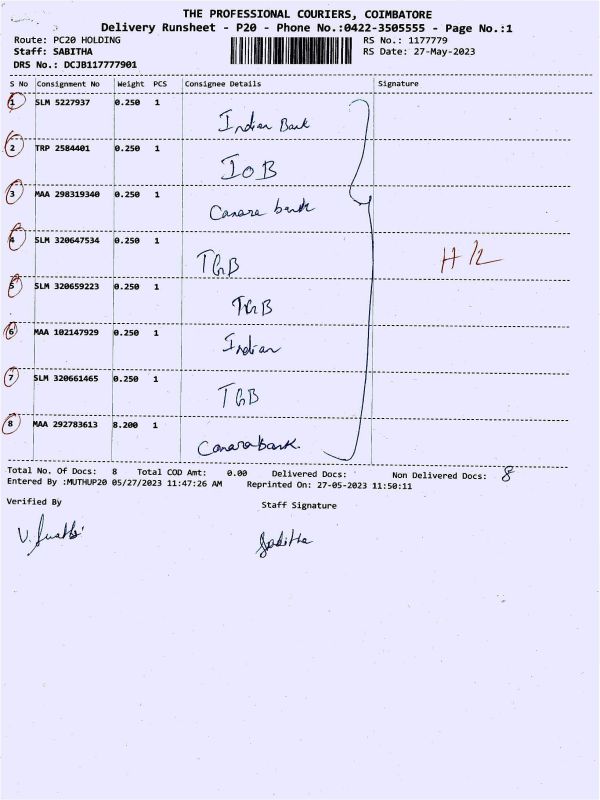 THE PROFESSIONAL COURIERS, COIMBATORE
Delivery Runsheet - P20 - Phone No.:0422-3505555 - Page No.:1
Route: PC20 HOLDING RS No.: 1177779
Staff: SABITHA RS Date: 27-May-2023
DRS No.: DCJB117777901
S No Consignment No Weight PCS Consignee Details Signature
1 SLM 5227937 0.250 1
Indian Bank
2 TRP 2584401 0.250 1
IOB
3 MAA 298319340 0.250 1
Canara bank
4 SLM 320647534 0.250 1
TGB
5 SLM 320659223 0.250 1
TGB
6 MAA 102147929 0.250 1
Indian
7 SLM 320661465 0.250 1
TGB
8 MAA 292783613 8.200 1
Canara bank.
Total No. Of Docs: 8 Total COD Amt: 0.00 Delivered Docs: Non Delivered Docs: 8
Entered By :MUTHUP20 05/27/2023 11:47:26 AM Reprinted On: 27-05-2023 11:50:11
Verified By Staff Signature
Sabitha